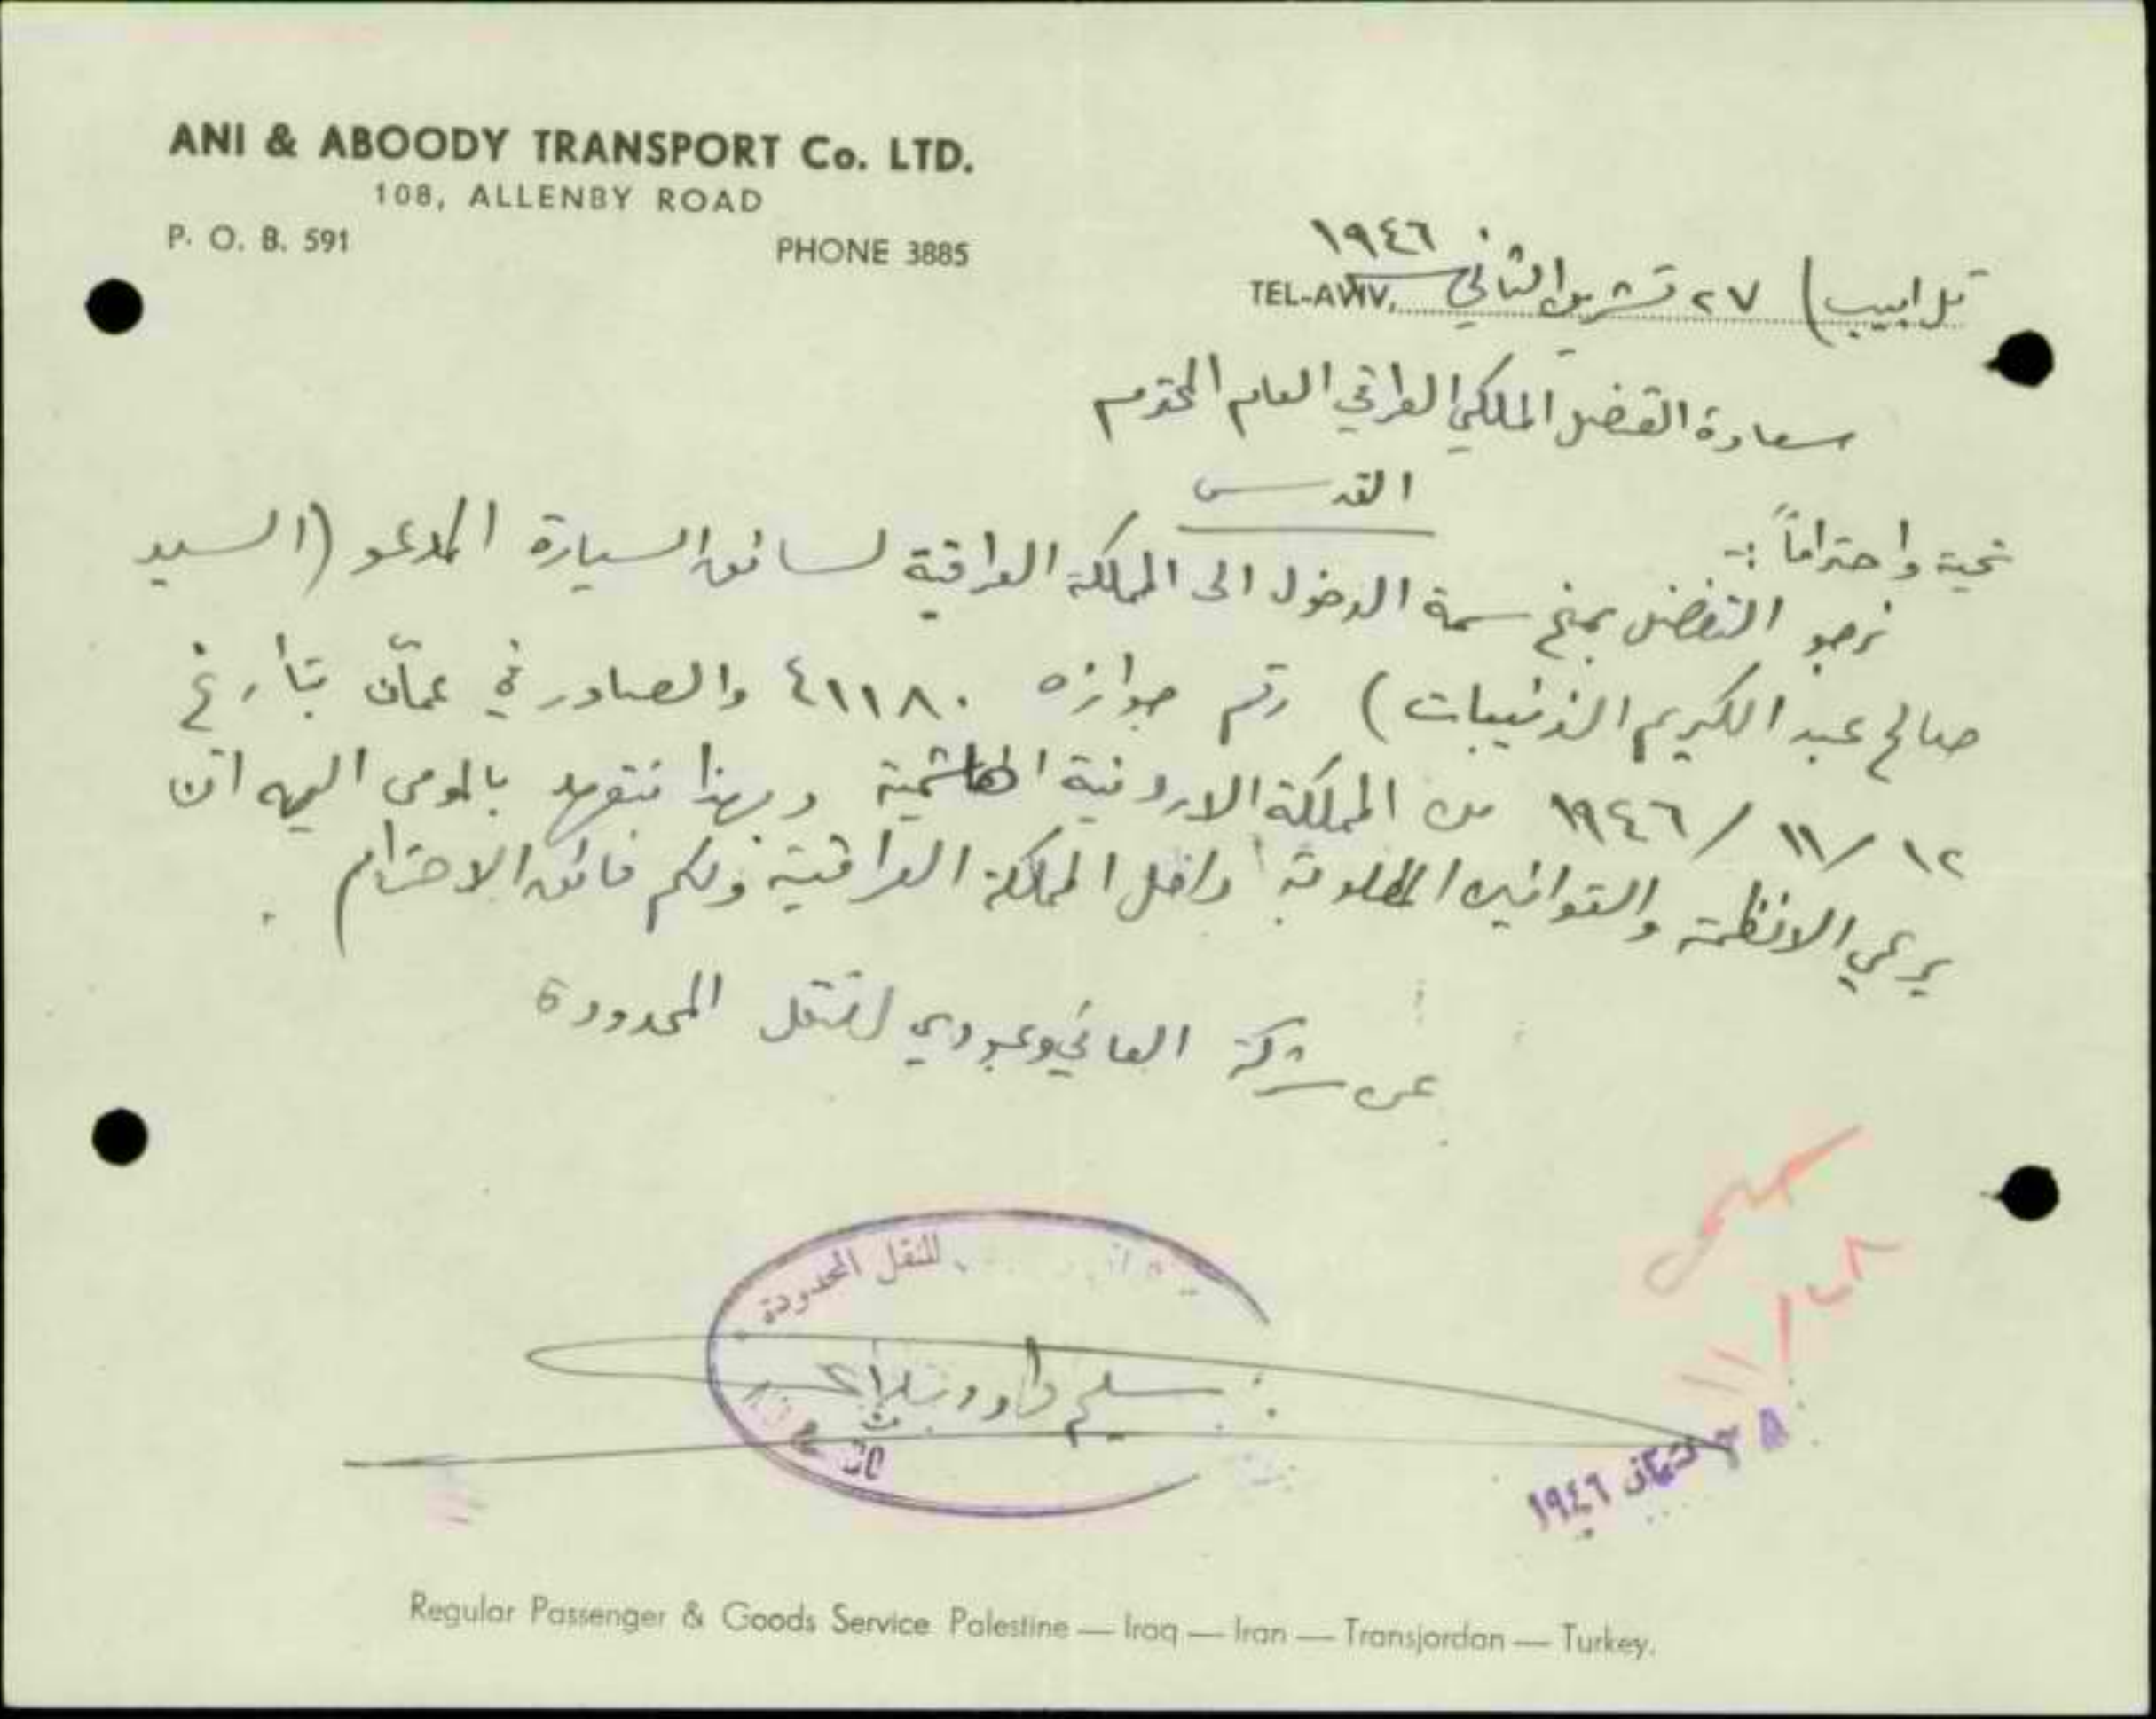 ANI & ABOODY TRANSPORT Co. LTD.
108, ALLENBY ROAD
P. O. B. 591 PHONE 3885
TEL-AVIV, تل ابيب) ٢٧ تشرين الثاني ١٩٤٦
سعادة القنصل الملكي العراقي العام المحترم
القدس
تحية واحتراماً :-
نرجو التفضل بمنح سمة الدخول الى المملكة العراقية لسائق السيارة المدعو (السيد
صالح عبد الكريم الذنيبات) رقم جوازه ٤١١٨٠ والصادر في عمّان بتأريخ
١٢/١١/١٩٤٦ من المملكة الاردنية الهاشمية وبهذا نتعهد بالمومى اليه ان
يرعي الانظمة والقوانين المطلوبة داخل المملكة العراقية ولكم فائق الاحترام .
عن شركة العاني وعبودي للنقل المحدودة
للنقل المحدودة
سليم داود
٢٨/١١
١٩٤٦
Regular Passenger & Goods Service Palestine — Iraq — Iran — Transjordan — Turkey.